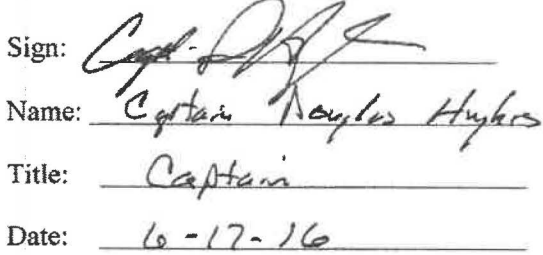 Sign: Capt.
Name: Captain Douglas Hughes
Title: Captain
Date: 6-17-16